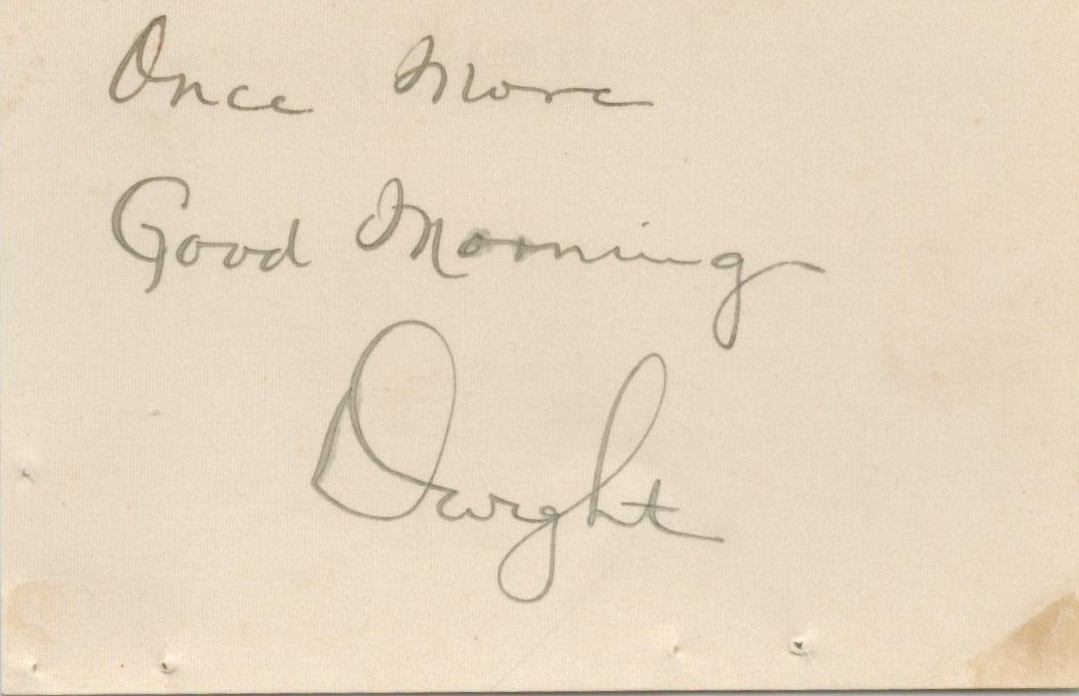 Once More
Good Morning
Dwight